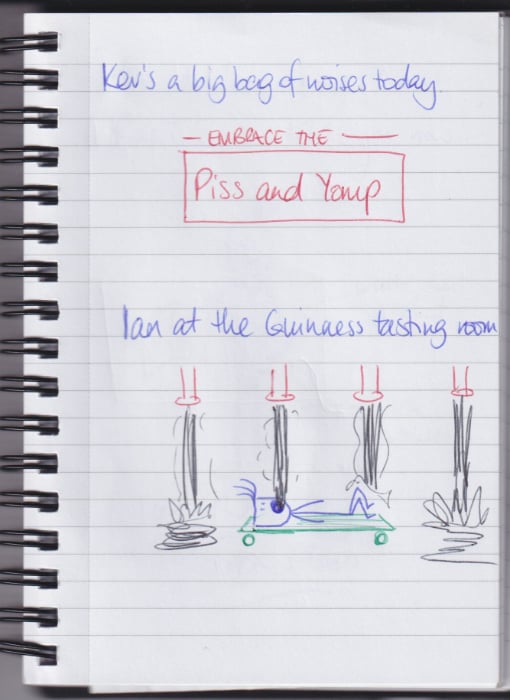 Kev's a big bag of noises today.
EMBRACE THE
Piss and Yomp
Ian at the Guinness tasting room